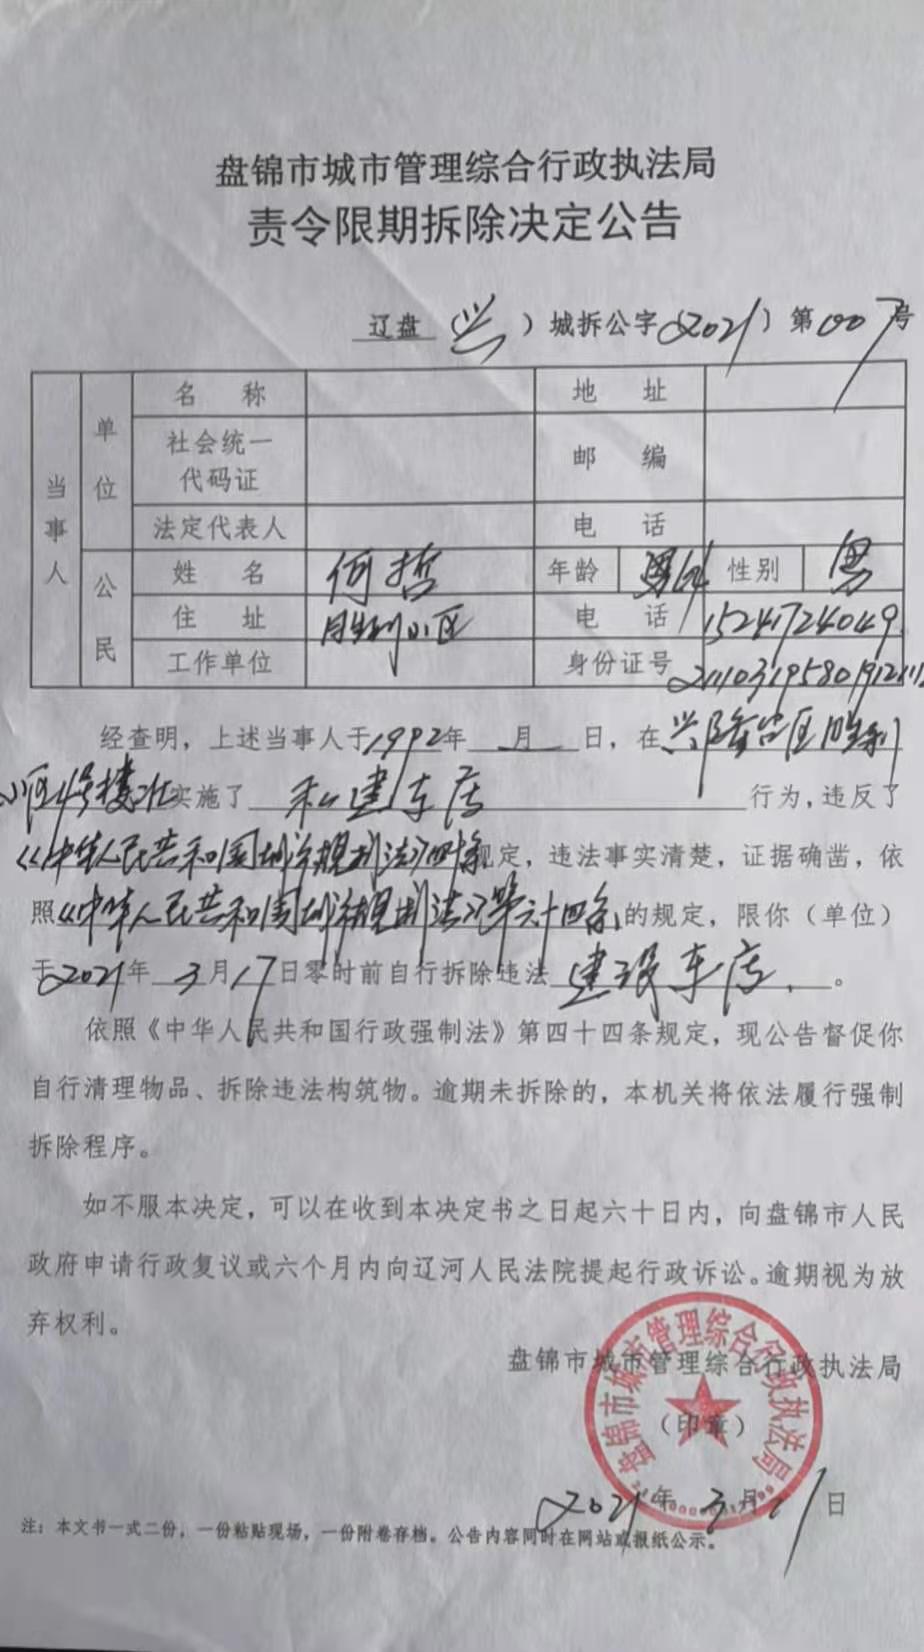 盘锦市城市管理综合行政执法局
责令限期拆除决定公告
辽盘（兴）城拆公字（2021）第007号
当事人
单位
名 称 地 址
社会统一代码证 邮 编
法定代表人 电 话
公民
姓 名 何哲 年龄 性别 男
住 址 胜利小区 电 话 15241724049
工作单位 身份证号
经查明，上述当事人于1992年 月 日，在兴隆台区胜利
小区4号楼北实施了 私建车店 行为，违反了
《中华人民共和国城乡规划法》四十条规定，违法事实清楚，证据确凿，依
照《中华人民共和国城乡规划法》第六十四条的规定，限你（单位）
于2021年 3月17日零时前自行拆除违法 建设车店 。
依照《中华人民共和国行政强制法》第四十四条规定，现公告督促你
自行清理物品、拆除违法构筑物。逾期未拆除的，本机关将依法履行强制
拆除程序。
如不服本决定，可以在收到本决定书之日起六十日内，向盘锦市人民
政府申请行政复议或六个月内向辽河人民法院提起行政诉讼。逾期视为放
弃权利。
盘锦市城市管理综合行政执法局
（印章）
盘锦市城市管理综合行政执法局
2021年 3月11日
注：本文书一式二份，一份粘贴现场，一份附卷存档。公告内容同时在网站或报纸公示。